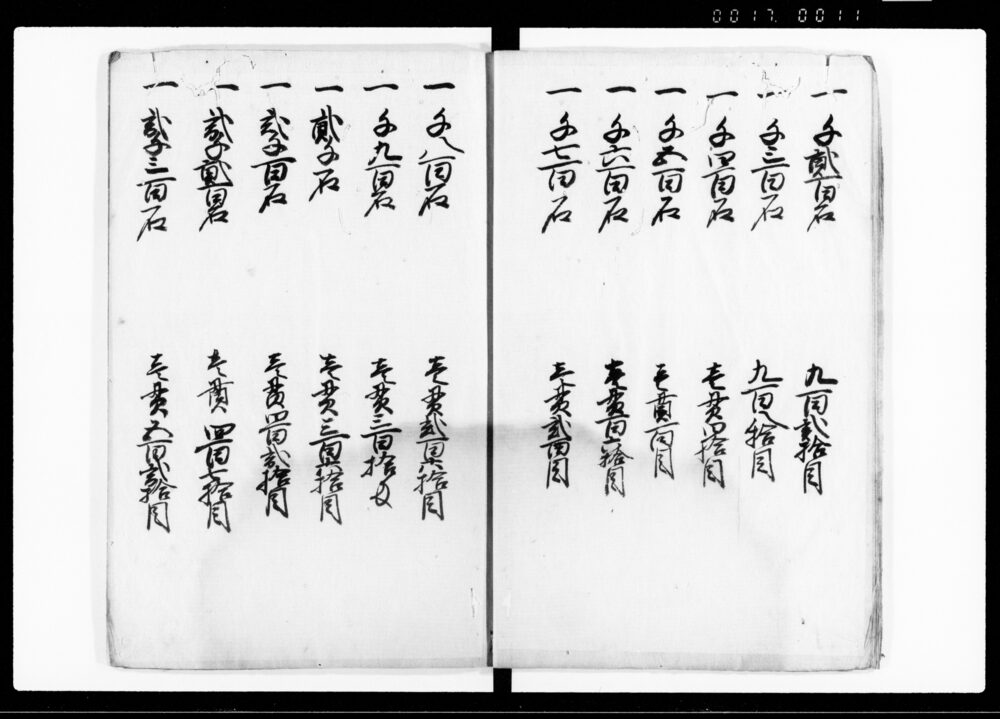 0017 0011
一 千貳百石 九百弐拾目
一 千三百石 九百八拾目
一 千四百石 壱貫四拾目
一 千五百石 壱貫百目
一 千六百石 壱貫百六拾目
一 千七百石 壱貫弐百目
一 千八百石 壱貫弐百六拾目
一 千九百石 壱貫三百拾匁
一 貳千石 壱貫三百六拾目
一 弐千百石 壱貫四百弐拾目
一 弐千貳百石 壱貫四百七拾目
一 弐千三百石 壱貫五百弐拾目